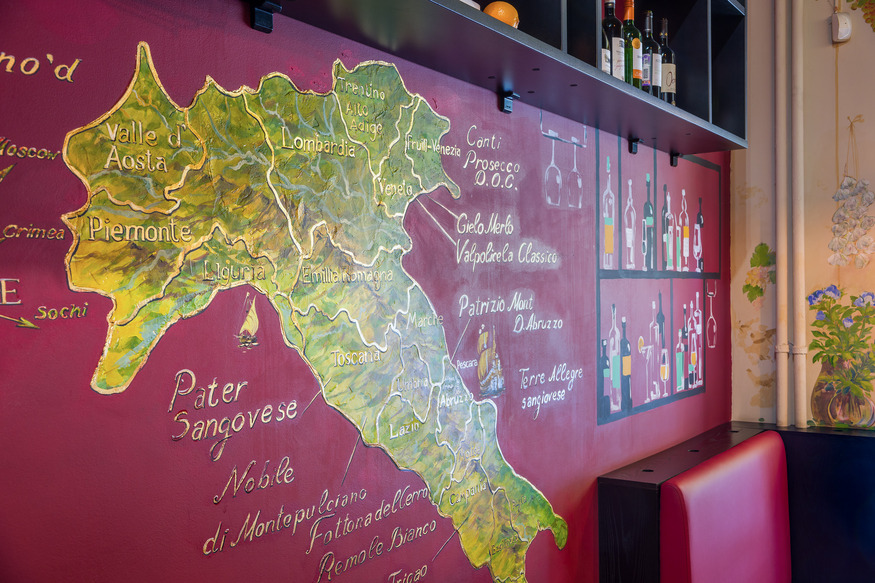 no'd
Moscow
Crimea
Sochi
Valle d'
Aosta
Piemonte
Lombardia
Trentino
Alto
Adige
Veneto
Friuli-Venezia
Liguria
Emilia Romagna
Toscana
Marche
Umbria
Pescara
Abruzzo
Lazin
Campania
Canti
Prosecco
D.O.C.
Gielo Merlo
Valpolicela Classico
Patrizio Moni
D.Abruzzo
Terre Allegre
sangiovese
Pater
Sangovese
Nobile
di Montepulciano
Fattona del Cerro
Remole Bianco
Trigao